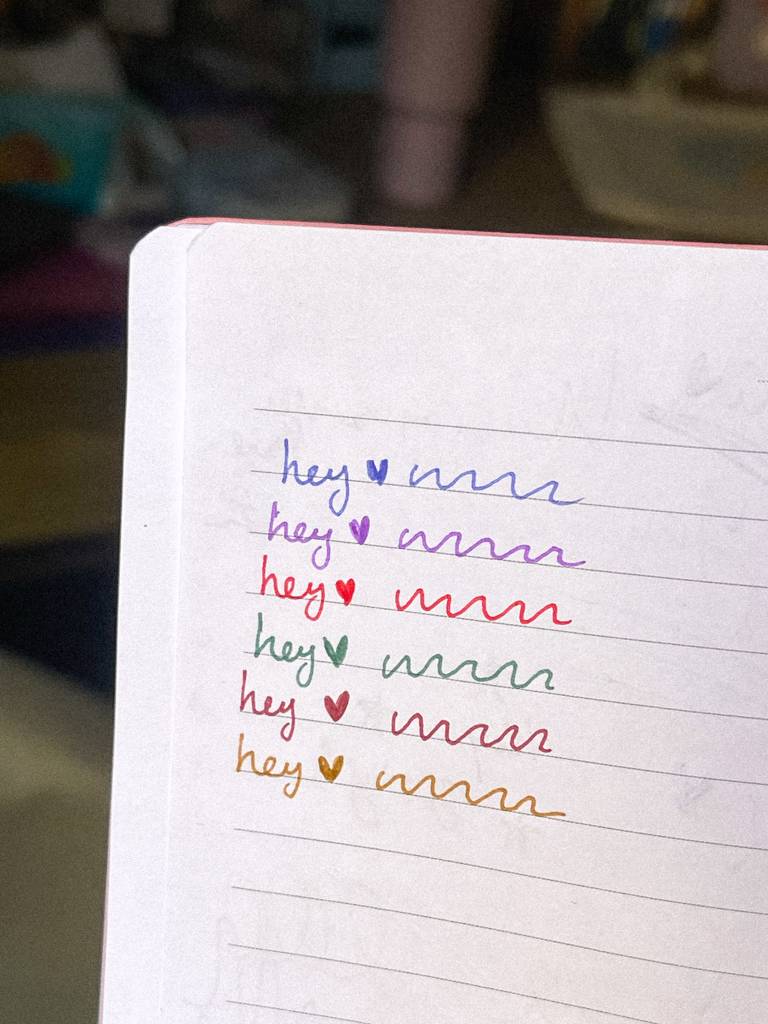 hey
hey
hey
hey
hey
hey